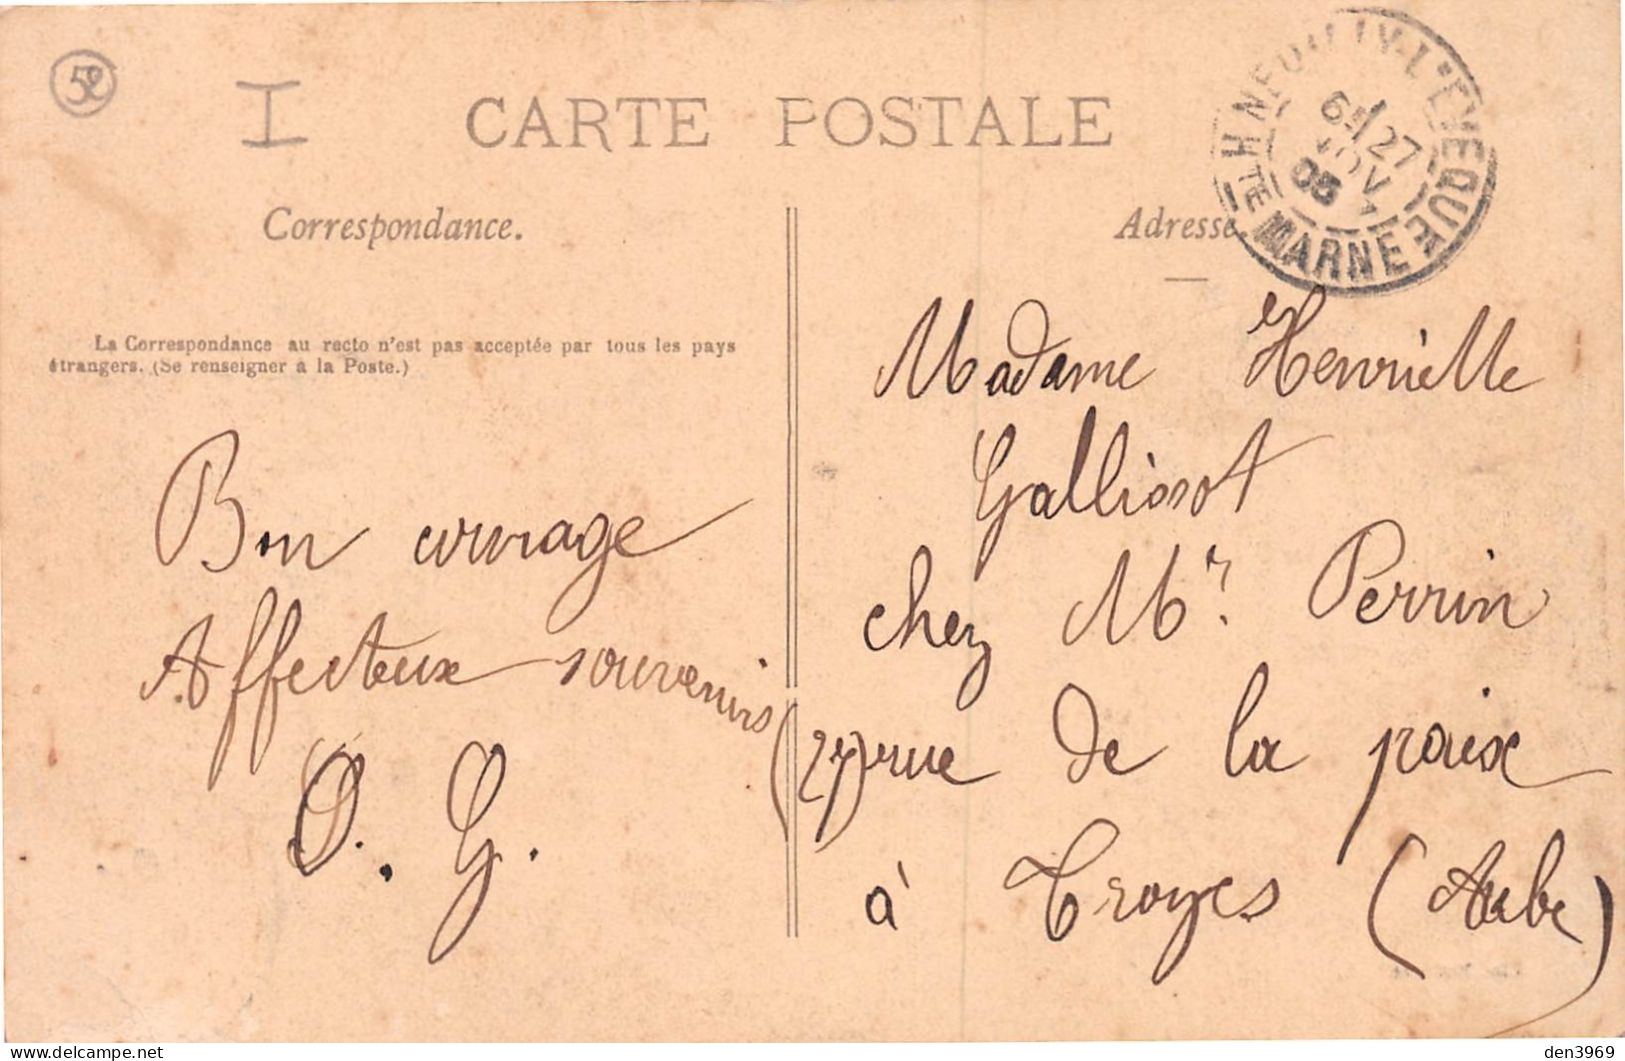 52
I
CARTE POSTALE
NEUILLY-L'EVEQUE
27
NOV
05
HTE MARNE
Correspondance.
Adresse.
La Correspondance au recto n'est pas acceptée par tous les pays
étrangers. (Se renseigner à la Poste.)
Bon courage
Affectueux souvenirs
O. G.
Madame Henriette
Gallissot
chez Mr. Perrin
(27) rue de la paix
à Troyes (Aube)
den3969